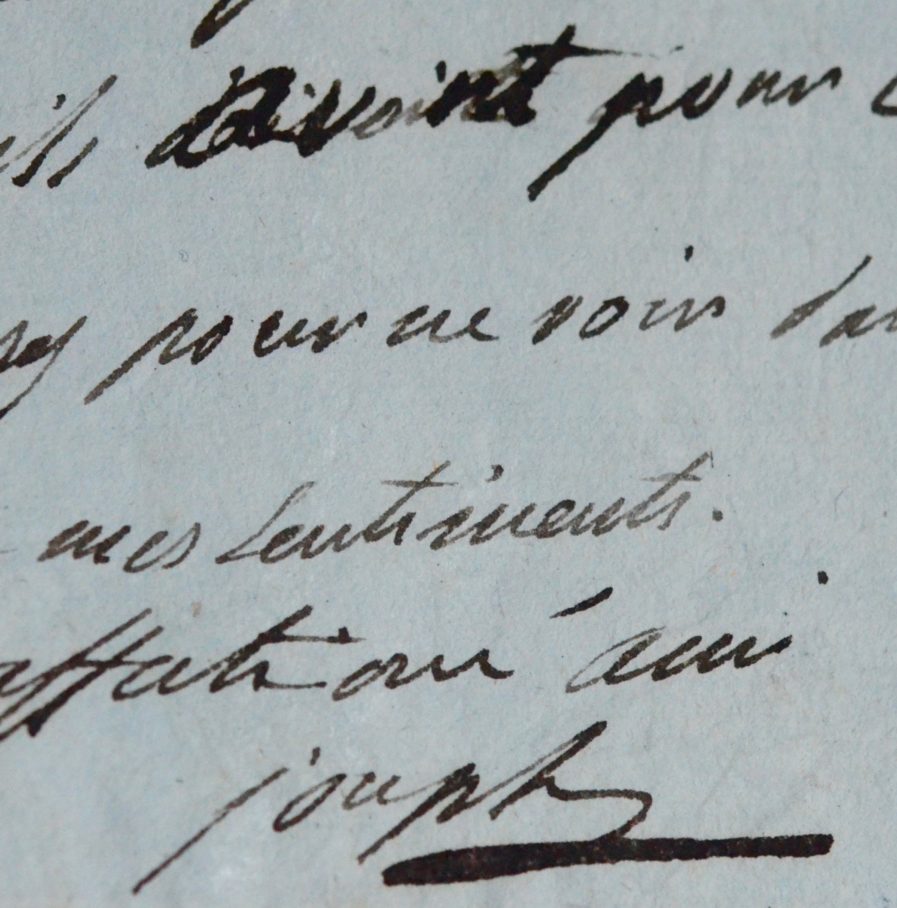 ils divoint pour
pour ne voir dan
mes sentiments.
affectioné ami
joseph